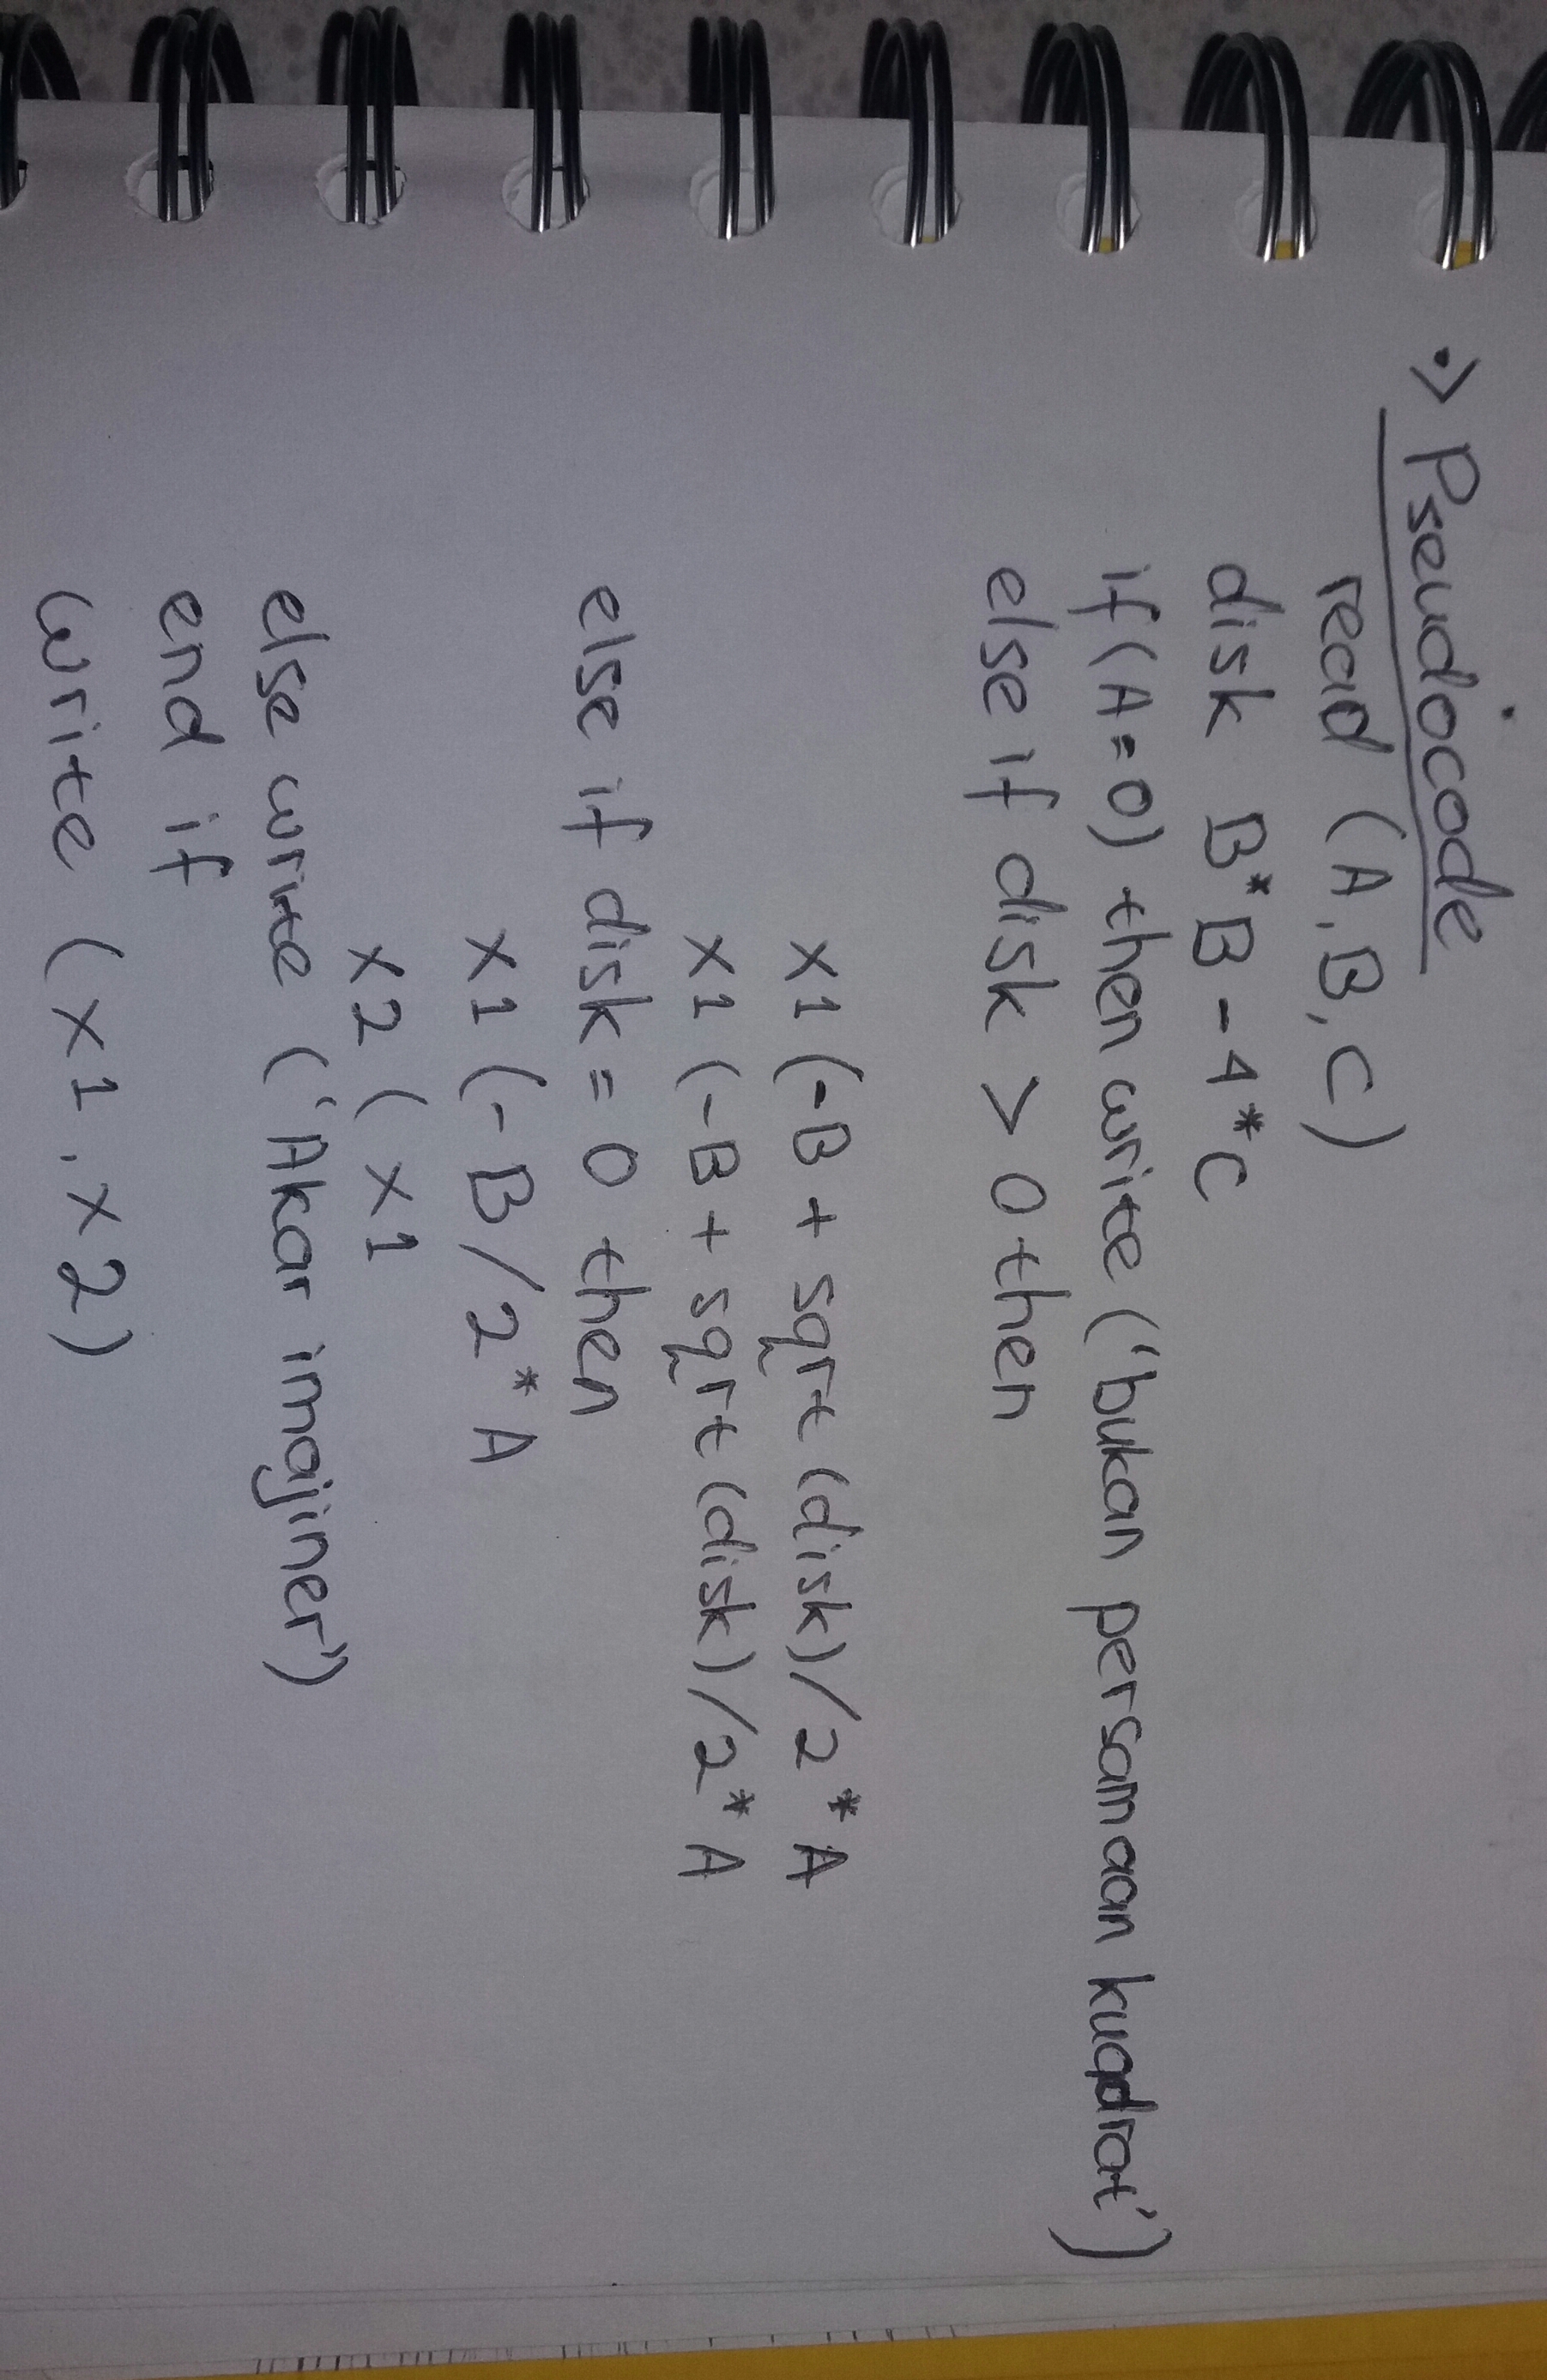 •> Pseudocode
read (A, B, C)
disk B*B - 4*C
if (A = 0) then write ('bukan persamaan kuadrat')
else if disk > 0 then
x1 (-B + sqrt (disk) / 2 * A
x1 (-B + sqrt (disk) / 2 * A
else if disk = 0 then
x1 (-B / 2 * A
x2 ( x1
else write ('Akar imajiner')
end if
write ( x1 , x2 )